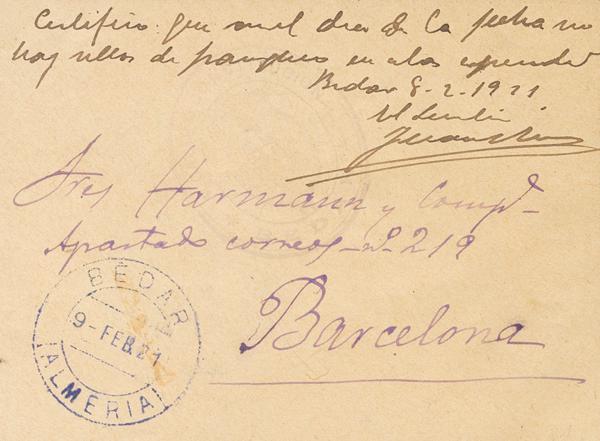 Certifico que en el dia de la fecha no
hay sellos de franqueo en esta expended
Bedar 8-2-1921
El
Juan
Sres Harmann y Compª
Apartado correos nº 219
Barcelona
BÉDAR
9-FEB.21
(ALMERIA)